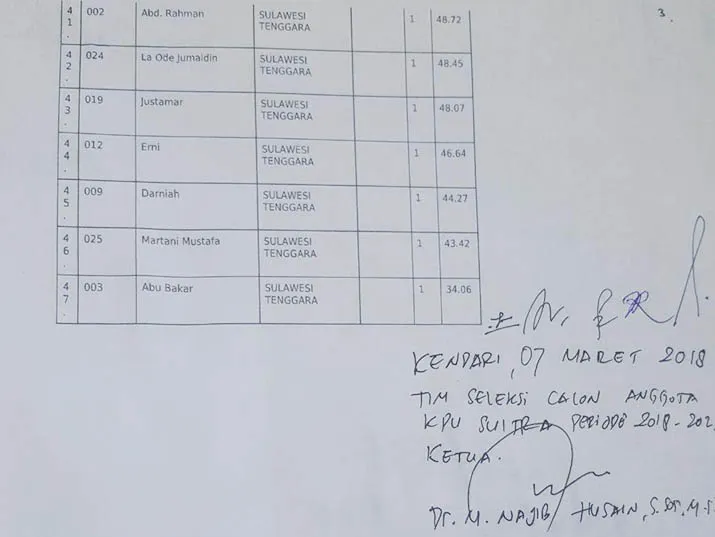 3.
41. 002 Abd. Rahman SULAWESI TENGGARA 1 48.72
42. 024 La Ode Jumaidin SULAWESI TENGGARA 1 48.45
43. 019 Justamar SULAWESI TENGGARA 1 48.07
44. 012 Erni SULAWESI TENGGARA 1 46.64
45. 009 Darniah SULAWESI TENGGARA 1 44.27
46. 025 Martani Mustafa SULAWESI TENGGARA 1 43.42
47. 003 Abu Bakar SULAWESI TENGGARA 1 34.06
KENDARI, 07 MARET 2018
TIM SELEKSI CALON ANGGOTA
KPU SULTRA PERIODE 2018-202
KETUA.
Dr. M. NAJIB HUSAIN, S.Sos, M.S